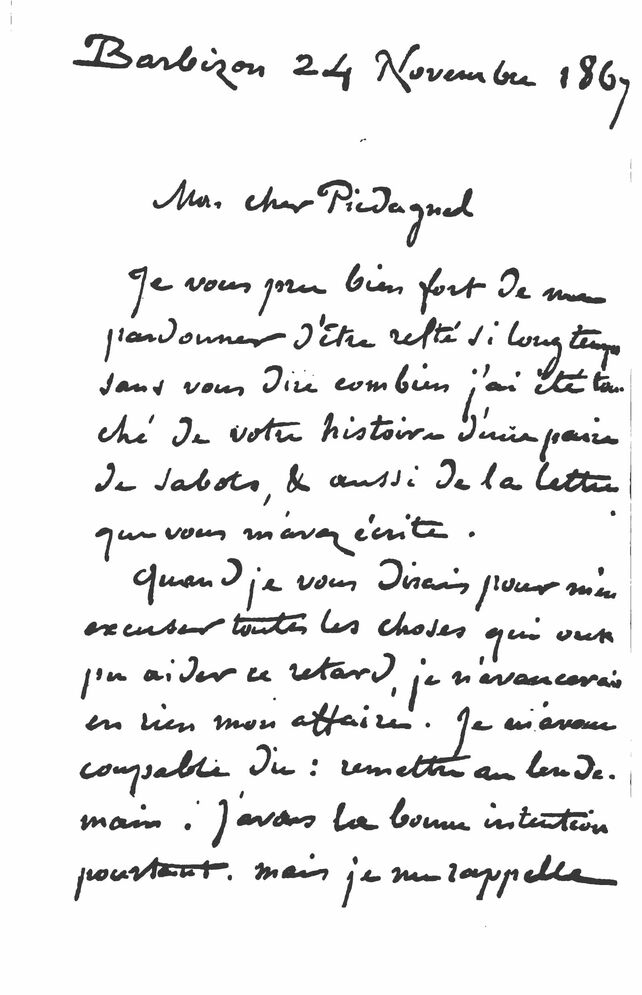 Barbizon 24 Novembre 1867
Mon cher Piedagnel
Je vous prie bien fort de me
pardonner d'être resté si longtemps
sans vous dire combien j'ai été tou-
ché de votre histoire d'une paire
de sabots, & aussi de la lettre
que vous m'avez écrite.
Quand je vous dirais pour m'en
excuser toutes les choses qui ont
pu aider ce retard, je n'avancerais
en rien mon affaire. Je m'avoue
coupable du : remettre au lende-
main : J'avais la bonne intention
pourtant. mais je me rappelle